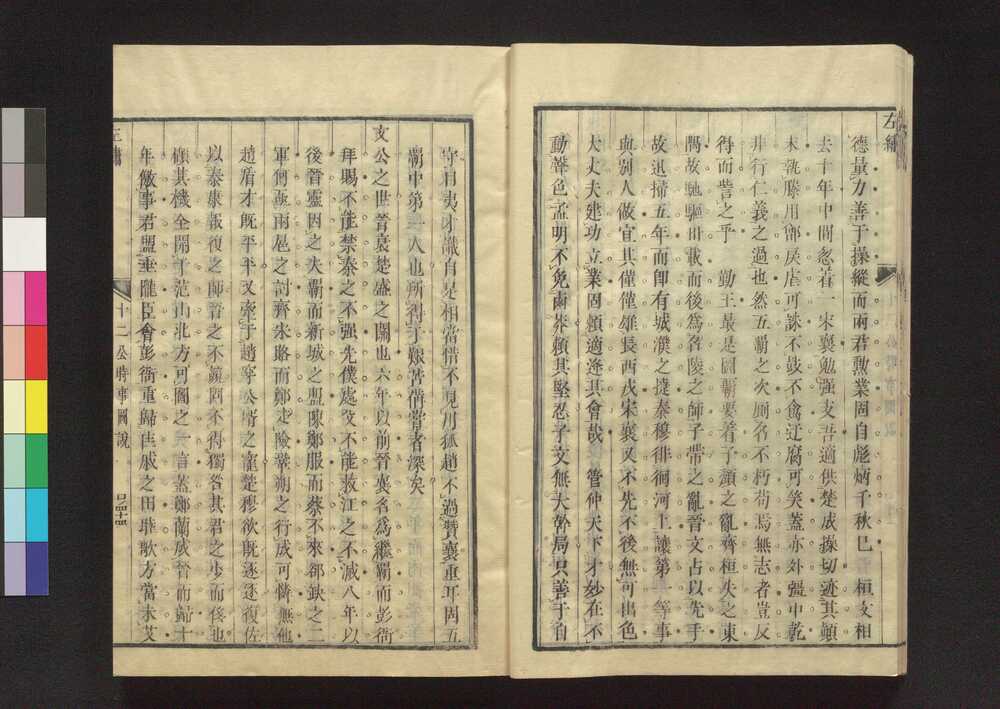 左繡
德量力善于操縱而兩君勲業固自彪炳千秋巳 桓文相
去十年中間忽着一宋襄勉强支吾適供楚成操切迹其顛
末執滕用鄫戾虐可誅不鼓不禽迂腐可笑蓋亦外彊中乾
非行仁義之過也然五霸之次厠名不朽苟焉無志者豈反
得而訾之乎 勤王最是圖霸要着子頽之亂齊桓失之東
隅故馳驅卅載而後爲召陵之師子帶之亂晉文占以先手
故迅掃五年而即有城濮之捷秦穆徘徊河上讓第一等事
與別人做宜其僅僅雄長西戎宋襄又不先不後無可出色
大丈夫建功立業固願適逢其會哉 管仲天下才妙在不
動聲色孟明不免鹵莽賴其堅忍子文無大幹局只善于自
守目夷才識自是相當惜不見用狐趙不過贊襄重耳固五
霸中第一人也所得于艱苦備嘗者深矣
文公之世晉衰楚盛之關也六年以前晉襄名爲繼霸而彭衙
拜賜不能禁秦之不强先僕處父不能救江之不滅八年以
後晉靈因之失霸而新城之盟陳鄭服而蔡不來郤缺之二
軍僅亟兩扈之討齊求賂而鄭走險鞏朔之行成可憐無他
趙盾才既平平又牽于趙穿公壻之寵楚穆欲既逐逐復佐
以秦康報復之師晉之不競固不得獨咎其君之少而侈也
顧其機全開于范山北方可圖之一言蓋鄭蘭成晉而歸十
年敝事君盟垂隴臣會彭衙重歸匡戚之田雖歌方當未艾
左繡
十二公時事圖說